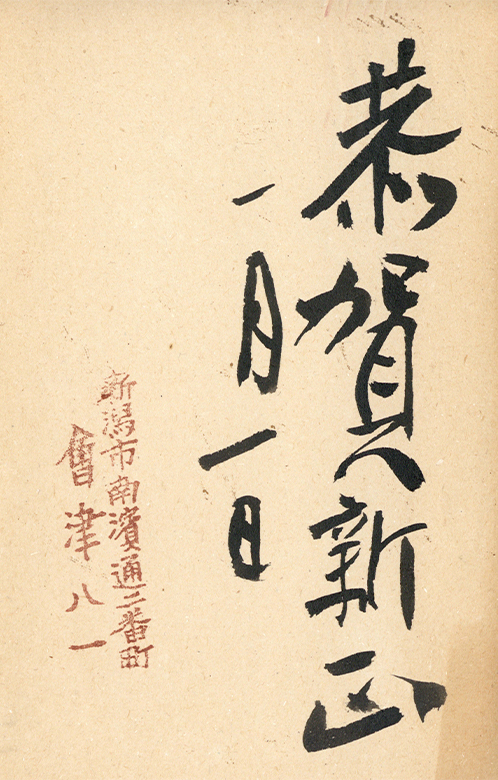 恭賀新正
一月一日
新潟市南濱通二番町
會津八一